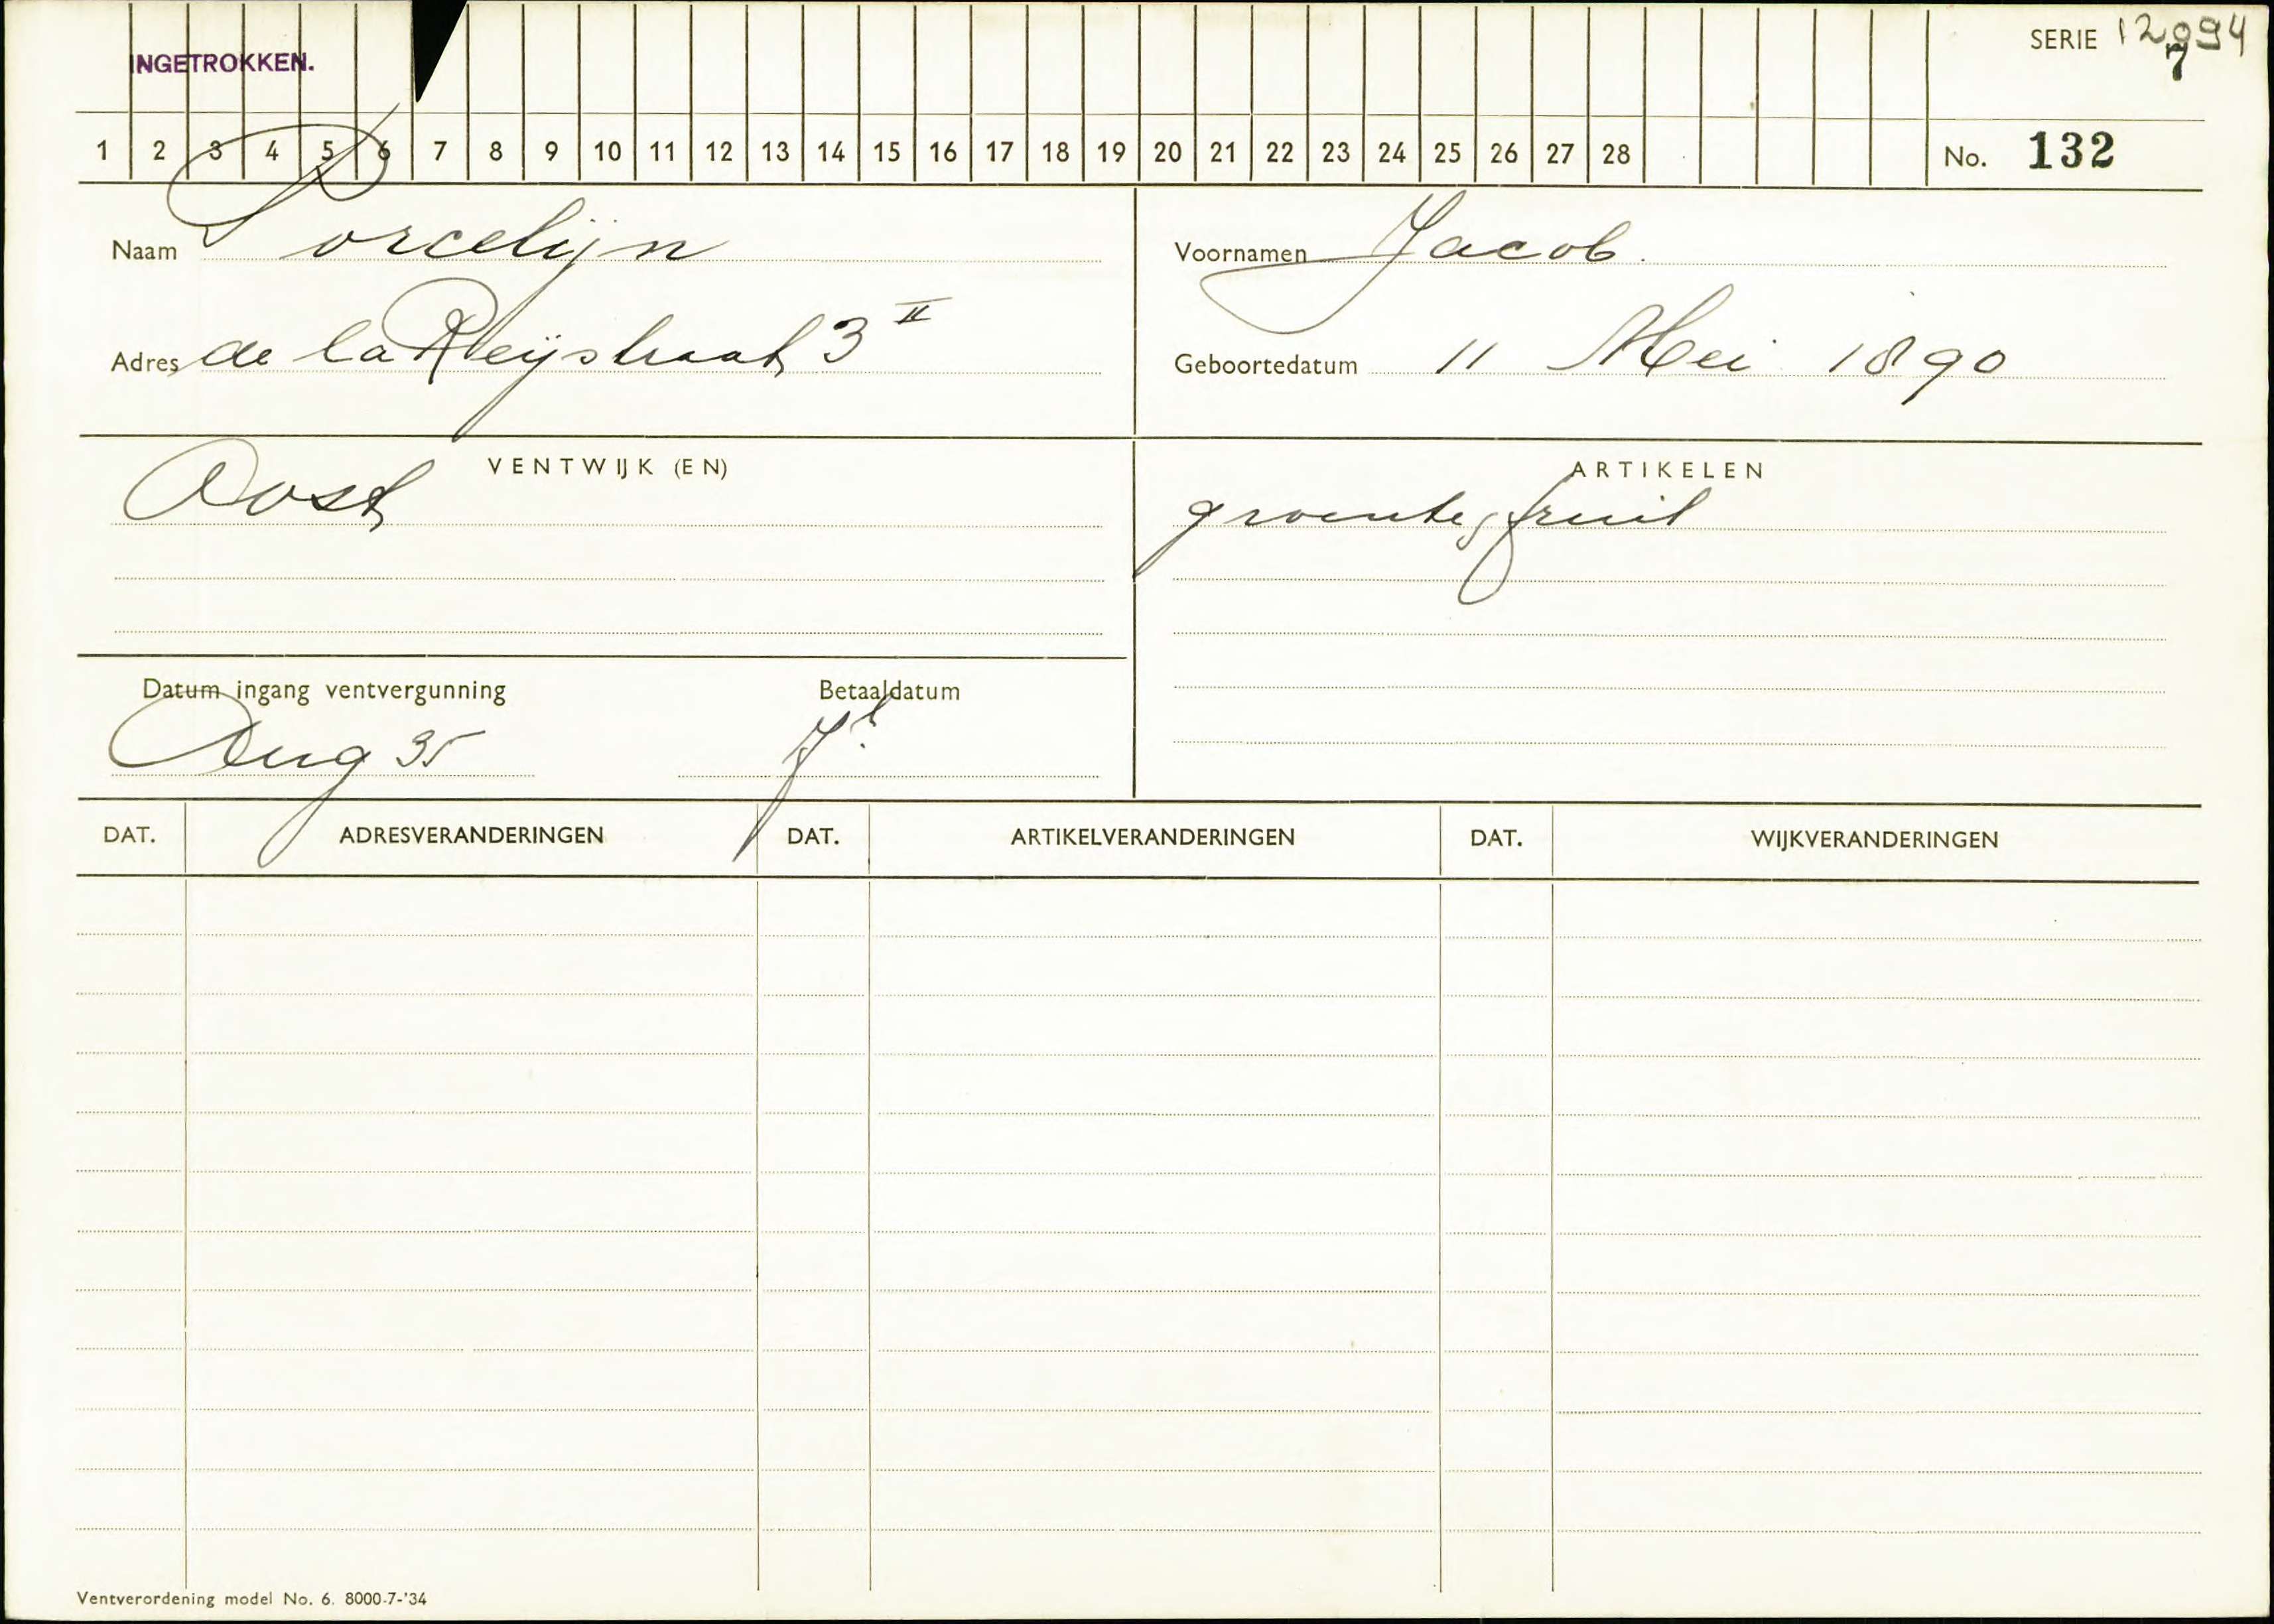 INGETROKKEN.
SERIE 12994
7
1 2 3 4 5 6 7 8 9 10 11 12 13 14 15 16 17 18 19 20 21 22 23 24 25 26 27 28
No. 132
Naam Porcelijn
Voornamen Jacob.
Adres de la Reijstraat 3 II
Geboortedatum 11 Mei 1890
VENTWIJK (EN)
Oost
ARTIKELEN
groente, fruit
Datum ingang ventvergunning
Aug 35
Betaaldatum
DAT. ADRESVERANDERINGEN DAT. ARTIKELVERANDERINGEN DAT. WIJKVERANDERINGEN
Ventverordening model No. 6. 8000-7-'34